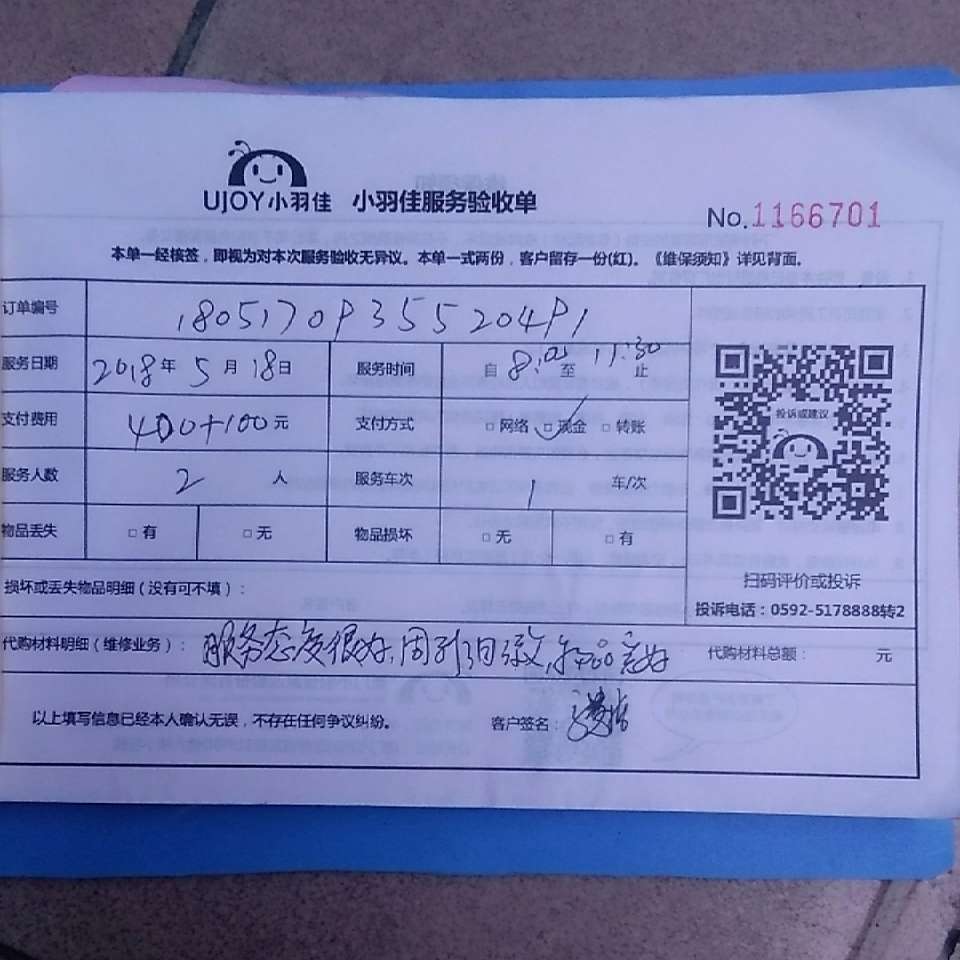 UJOY小羽佳 小羽佳服务验收单
No.1166701
本单一经核签，即视为对本次服务验收无异议。本单一式两份，客户留存一份(红)。《维保须知》详见背面。
订单编号 180517OP355204P1
服务日期 2018年5月18日 服务时间 自8:05至11:30止
支付费用 400+100元 支付方式 □网络 □现金 □转账
投诉或建议
服务人数 2人 服务车次 1 车/次
物品丢失 □有 □无 物品损坏 □无 □有
扫码评价或投诉
损坏或丢失物品明细（没有可不填）：
投诉电话：0592-5178888转2
代购材料明细（维修业务）： 服务态度很好，周到 代购材料总额： 元
以上填写信息已经本人确认无误，不存在任何争议纠纷。 客户签名：